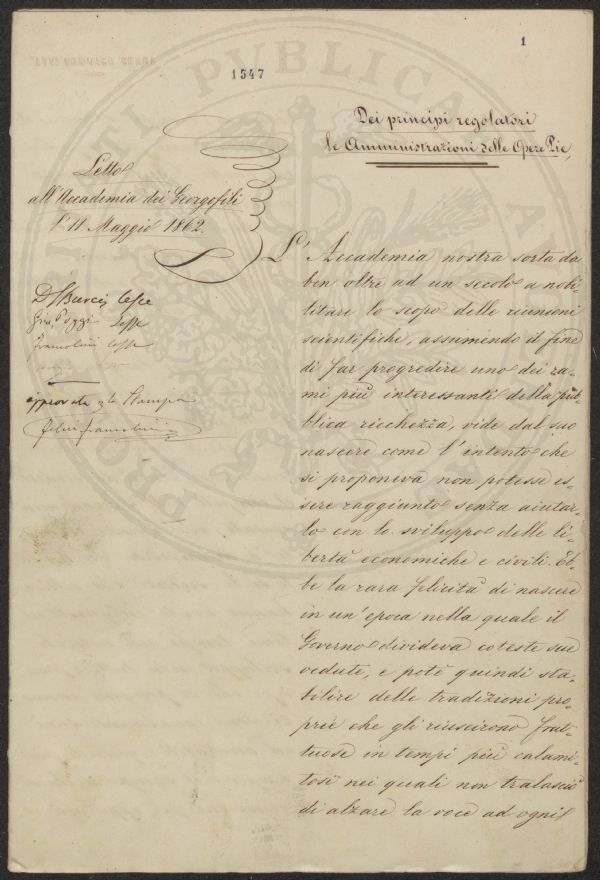 1
1547
Dei principi regolatori
le Amministrazioni delle Opere Pie,
Letto
all'Accademia dei Georgofili
l'11 Maggio 1862.
L'Accademia nostra sorta da
ben oltre ad un secolo a nobi-
litare lo scopo delle riunioni
scientifiche, assumendo il fine
di far progredire uno dei ra-
mi più interessanti della pub-
blica ricchezza, vide dal suo
nascere come l'intento che
si proponeva non potesse es-
sere raggiunto senza aiutar-
lo con lo sviluppo delle li-
bertà economiche e civili. Eb-
be la rara felicità di nascere
in un'epoca nella quale il
Governo divideva coteste sue
vedute, e potè quindi sta-
bilire delle tradizioni pro-
prie che gli riescirono frut-
tuose in tempi più calami-
tosi nei quali non tralasciò
di alzare la voce ad ogni
Poggi Lesse
Lesse
approvata per la Stampa
PUBLICA